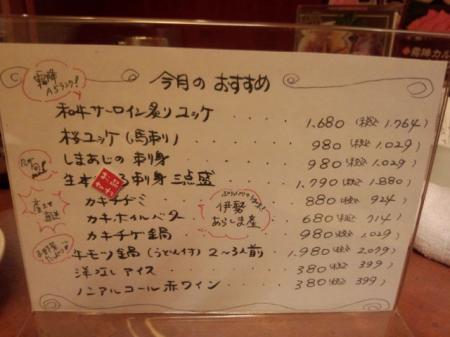 霜降
A5ランク!
今月の おすすめ
和牛サーロイン炙りユッケ ・・・ 1.680 (税込 1.764)
桜ユッケ (馬刺り) ・・・・・ 980 (税込 1.029)
しまあじの刺身 ・・・・・・ 980 (税込 1.029)
生本 刺身 三点盛 ・・・・ 1.790 (税込 1.880)
カキチヂミ ・・・ 880 (税込 924)
カキホイルバター 680 (税込 714)
カキチゲ鍋 980 (税込 1.029)
伊勢
あらしま産
牛モツ鍋 (うどん付) 2~3人前 ・ 1.980 (税込 2.079)
洋なしアイス ・・・・・・・・ 380 (税込 399)
ノンアルコール赤ワイン ・・・・・ 380 (税込 399)
霜降カル